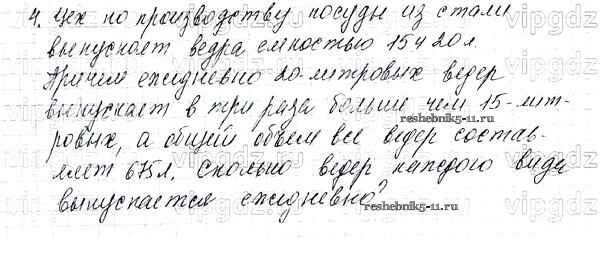 4. Цех по производству посуды из стали
выпускает ведра емкостью 15 и 20 л.
Причем ежедневно 20-литровых ведер
выпускает в три раза больше чем 15-лит-
reshebnik5-11.ru
ровых, а общий объем все ведер состав-
ляет 675 л. Сколько ведер каждого вида
выпускается ежедневно?
reshebnik5-11.ru